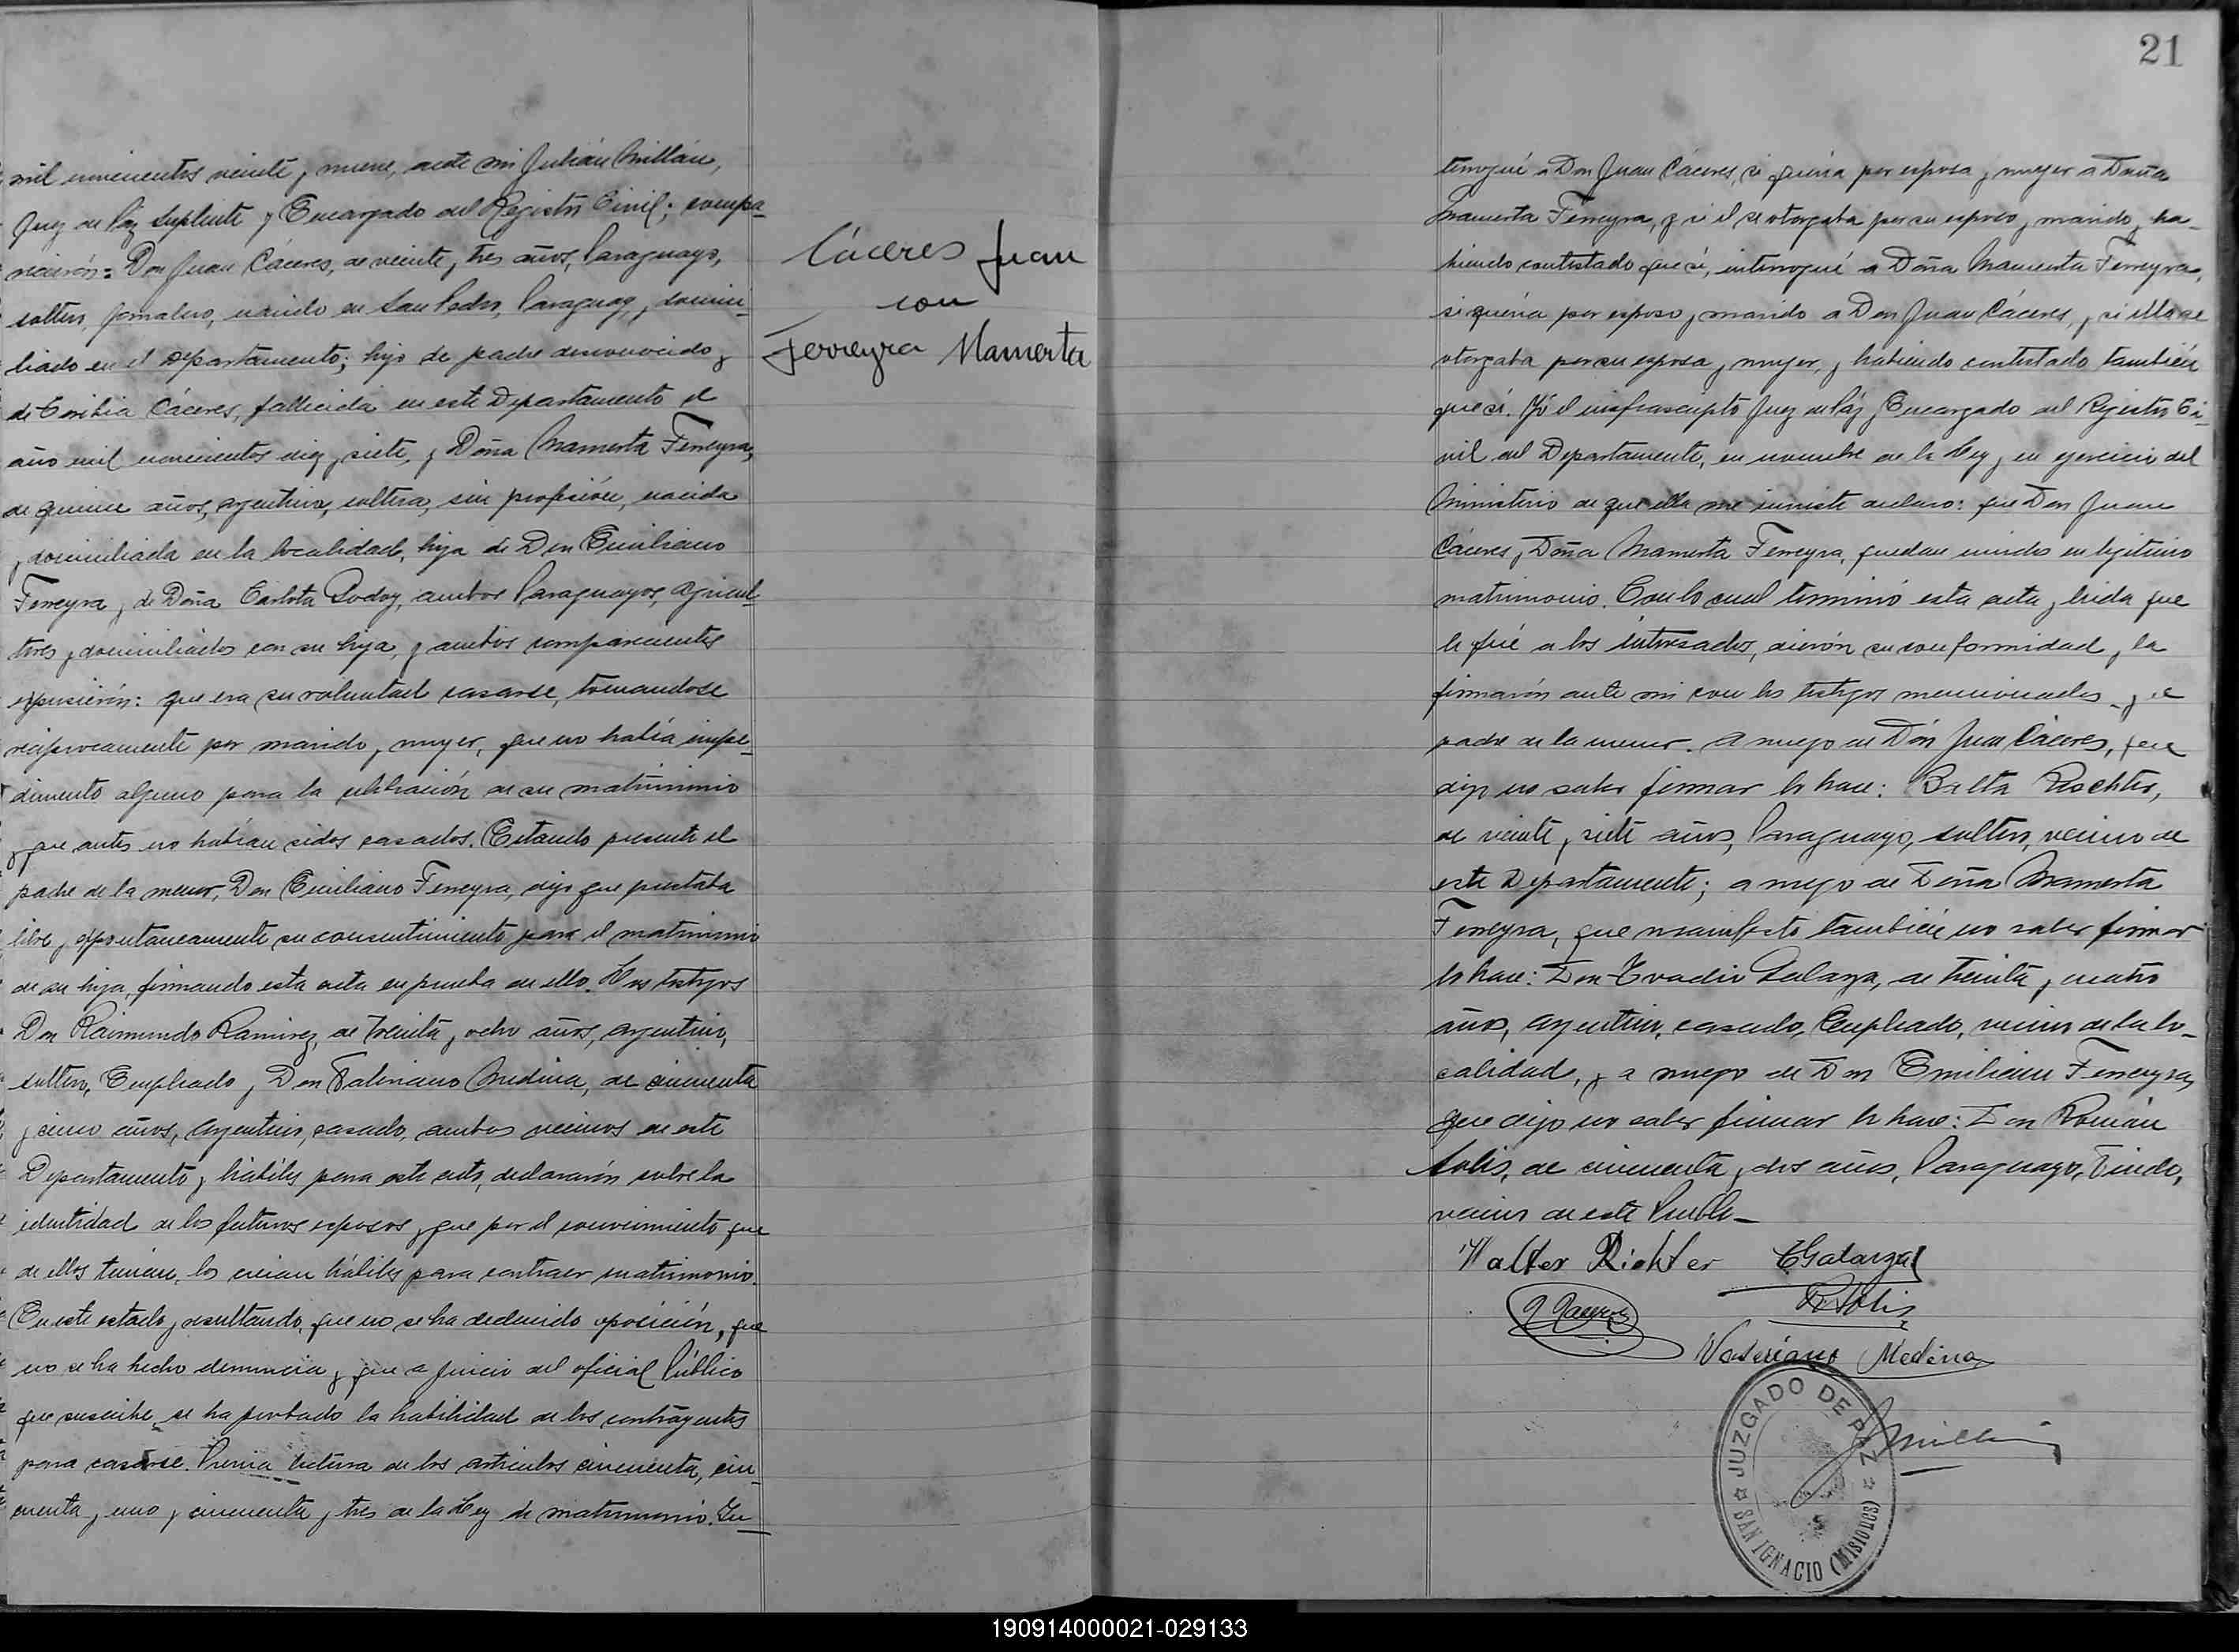 mil novecientos veinte y nueve, ante mi Julián Millán,
Juez de Paz Suplente y Encargado del Registro Civil; compa-
recieron: Don Juan Cáceres, de veinte y tres años, Paraguayo,
soltero, jornalero, nacido en San Pedro, Paraguay, y domici-
liado en el departamento; hijo de padre desconocido y
de Toribia Cáceres, fallecida en este Departamento el
año mil novecientos diez y siete, y Doña Mamerta Ferreyra,
de quince años, argentina, soltera, sin profesión, nacida
y domiciliada en la localidad, hija de Don Emiliano
Ferreyra y de Doña Carlota Godoy, ambos Paraguayos, agricul-
tores y domiciliados con su hija, y ambos comparecientes
expusierón: que era su voluntad casarse, tomandose
reciprocamente por marido y mujer, que no había impe-
dimento alguno para la celebración de su matrimonio
y que antes no habían sidos casados. Estando presente el
padre de la menor, Don Emiliano Ferreyra, dijo que prestaba
libre y espontaneamente su consentimiento para el matrimonio
de su hija, firmando esta acta en prueba de ello. Los testigos
Don Raimundo Ramirez, de treinta y ocho años, argentino,
soltero, Empleado y Don Valeriano Medina, de cincuenta
y cinco años, argentino, casado, ambos vecinos de este
Departamento y hábiles para este acto, declararón sobre la
identidad de los futuros esposos y que por el conocimiento que
de ellos tenían, los creían hábiles para contraer matrimonio.
En este estado y resultando, que no se ha deducido oposición, que
no se ha hecho denuncia y que a juicio del oficial Público
que suscribe, se ha probado la habilidad de los contrayentes
para casarse. Previa lectura de los artículos cincuenta, cin-
cuenta y uno y cincuenta y tres de la Ley de matrimonio. In-
Cáceres Juan
con
Ferreyra Mamerta
21
terrogué a Don Juan Cáceres, si quería por esposa y mujer a Doña
Mamerta Ferreyra, y si él se otorgaba por su esposo y marido, y ha-
biendo contestado que sí, interrogué a Doña Mamerta Ferreyra,
si quería por esposo y marido a Don Juan Cáceres, y si ella se
otorgaba por su esposa y mujer, y habiendo contestado también
que sí. Yó el infrascripto Juez de Páz y Encargado del Registro Ci-
vil del Departamento, en nombre de la Ley y en ejercicio del
Ministerio de que ella me inviste declaro: que Don Juan
Cáceres y Doña Mamerta Ferreyra, quedan unidos en legitimo
matrimonio. Con lo cual terminó esta acta y leida que
le fué a los interesados, dierón su conformidad y la
firmarón ante mi con los testigos mencionados y el
padre de la menor. A ruego de Dón Juan Cáceres, que
dijo no saber firmar lo hace: Balta Riochter,
de veinte y siete años, Paraguayo, soltero, vecino de
este Departamento; a ruego de Doña Mamerta
Ferreyra, que manifesto también no saber firmar
lo hace: Don Evadio Galarza, de treinta y cuatro
años, argentino, casado, Empleado, vecino de la lo-
calidad, y a ruego de Don Emiliano Ferreyra,
que dijo no saber firmar lo hace: Don Román
Solis, de cincuenta y dos años, Paraguayo, Viudo,
vecino de este Pueblo_
Walter Richter EGalarza
R Solis
Valeriano Medina
JUZGADO DE PAZ
SAN IGNACIO (MISIONES)
190914000021-029133